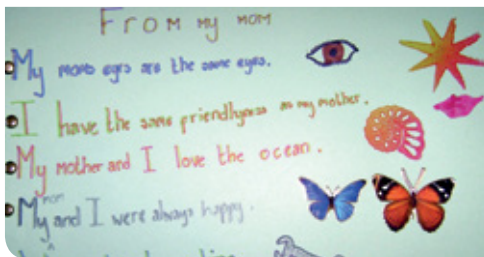 From my mom
My moms eyes are the same eyes.
I have the same friendlyness as my mother.
My mother and I love the ocean.
My mom and I were always happy.